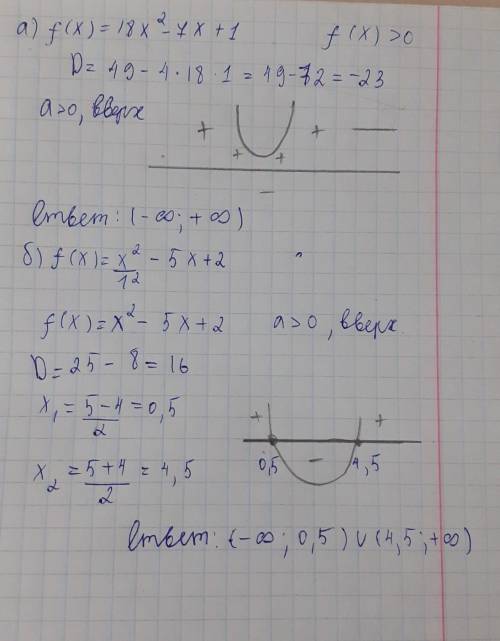 а) f(x) = 18x² - 7x + 1 f(x) > 0
D = 49 - 4 · 18 · 1 = 49 - 72 = -23
a>0, вверх
+ + —
+ +
-
Ответ: (-∞; +∞)
б) f(x) = x²/12 - 5x + 2
f(x) = x² - 5x + 2 a > 0, вверх
D = 25 - 8 = 16
x₁ = (5-4)/2 = 0,5
+ +
0,5 - 4,5
x₂ = (5+4)/2 = 4,5
Ответ: (-∞; 0,5) ∪ (4,5; +∞)